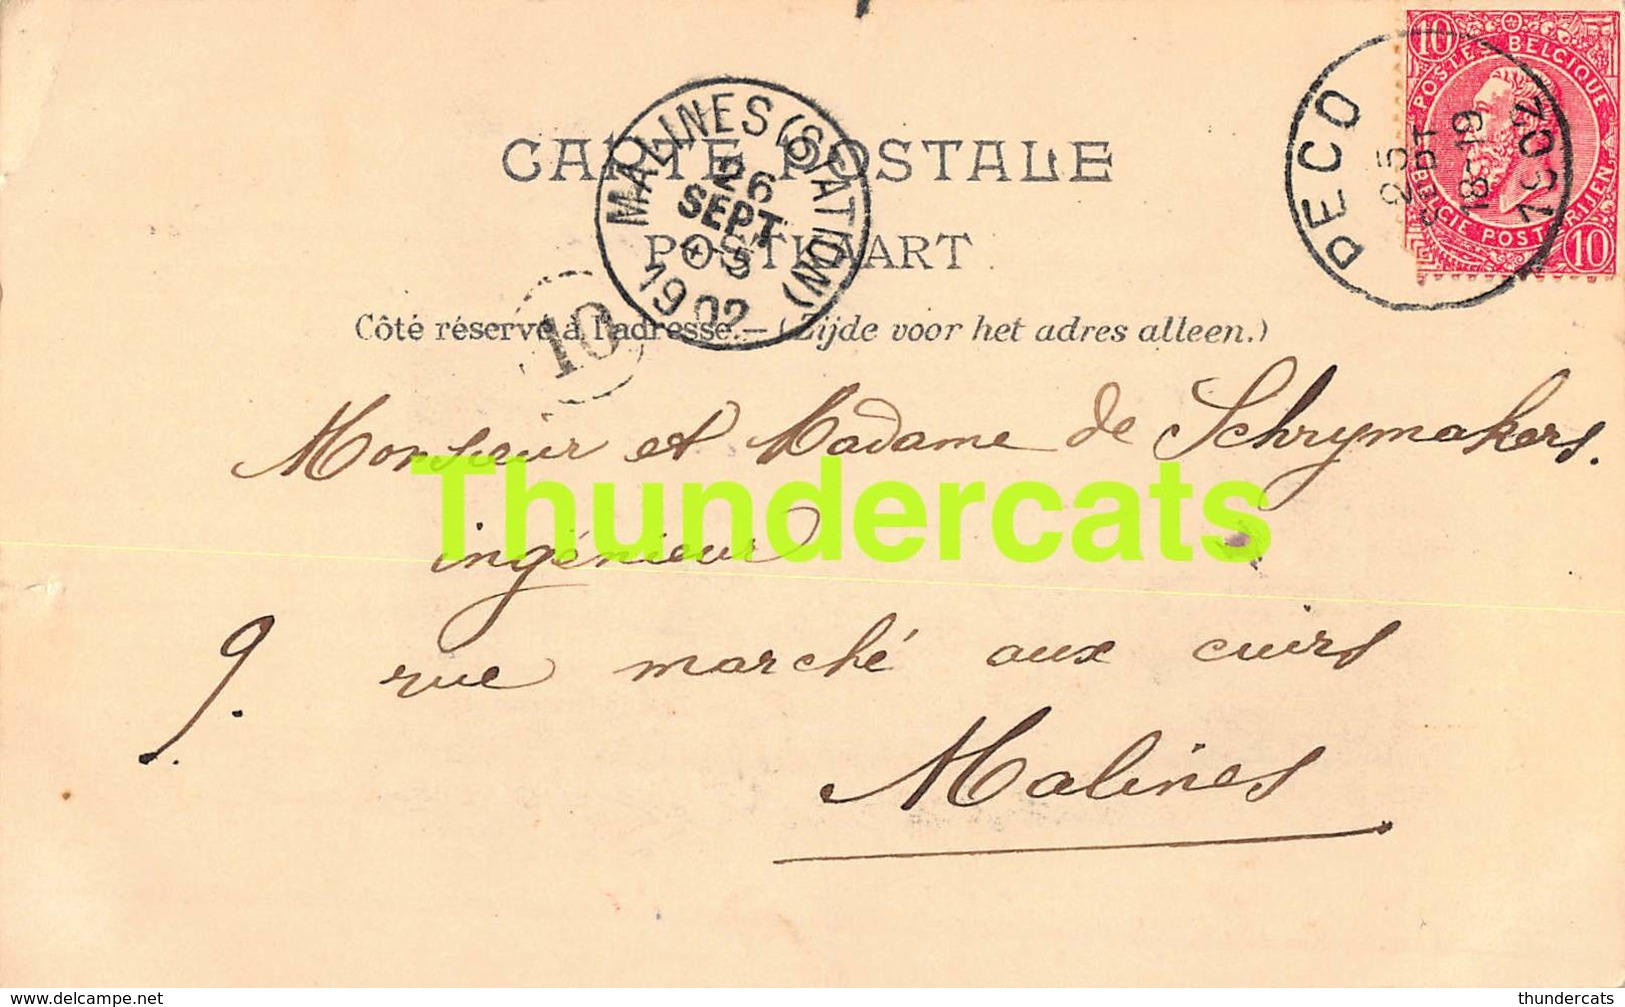 10 10
POSTES BELGIQUE
BELGIE POSTERIJEN
10
PECQ
25
SEPT
18-19
1902
MALINES (STATION)
26
SEPT
1902
CARTE POSTALE
POSTKAART
10
Côté réservé à l'adresse.— (Zijde voor het adres alleen.)
Monsieur et Madame de Schrymakers.
Thundercats
ingénieur
9. rue marché aux cuirs
Malines
www.delcampe.net
thundercats